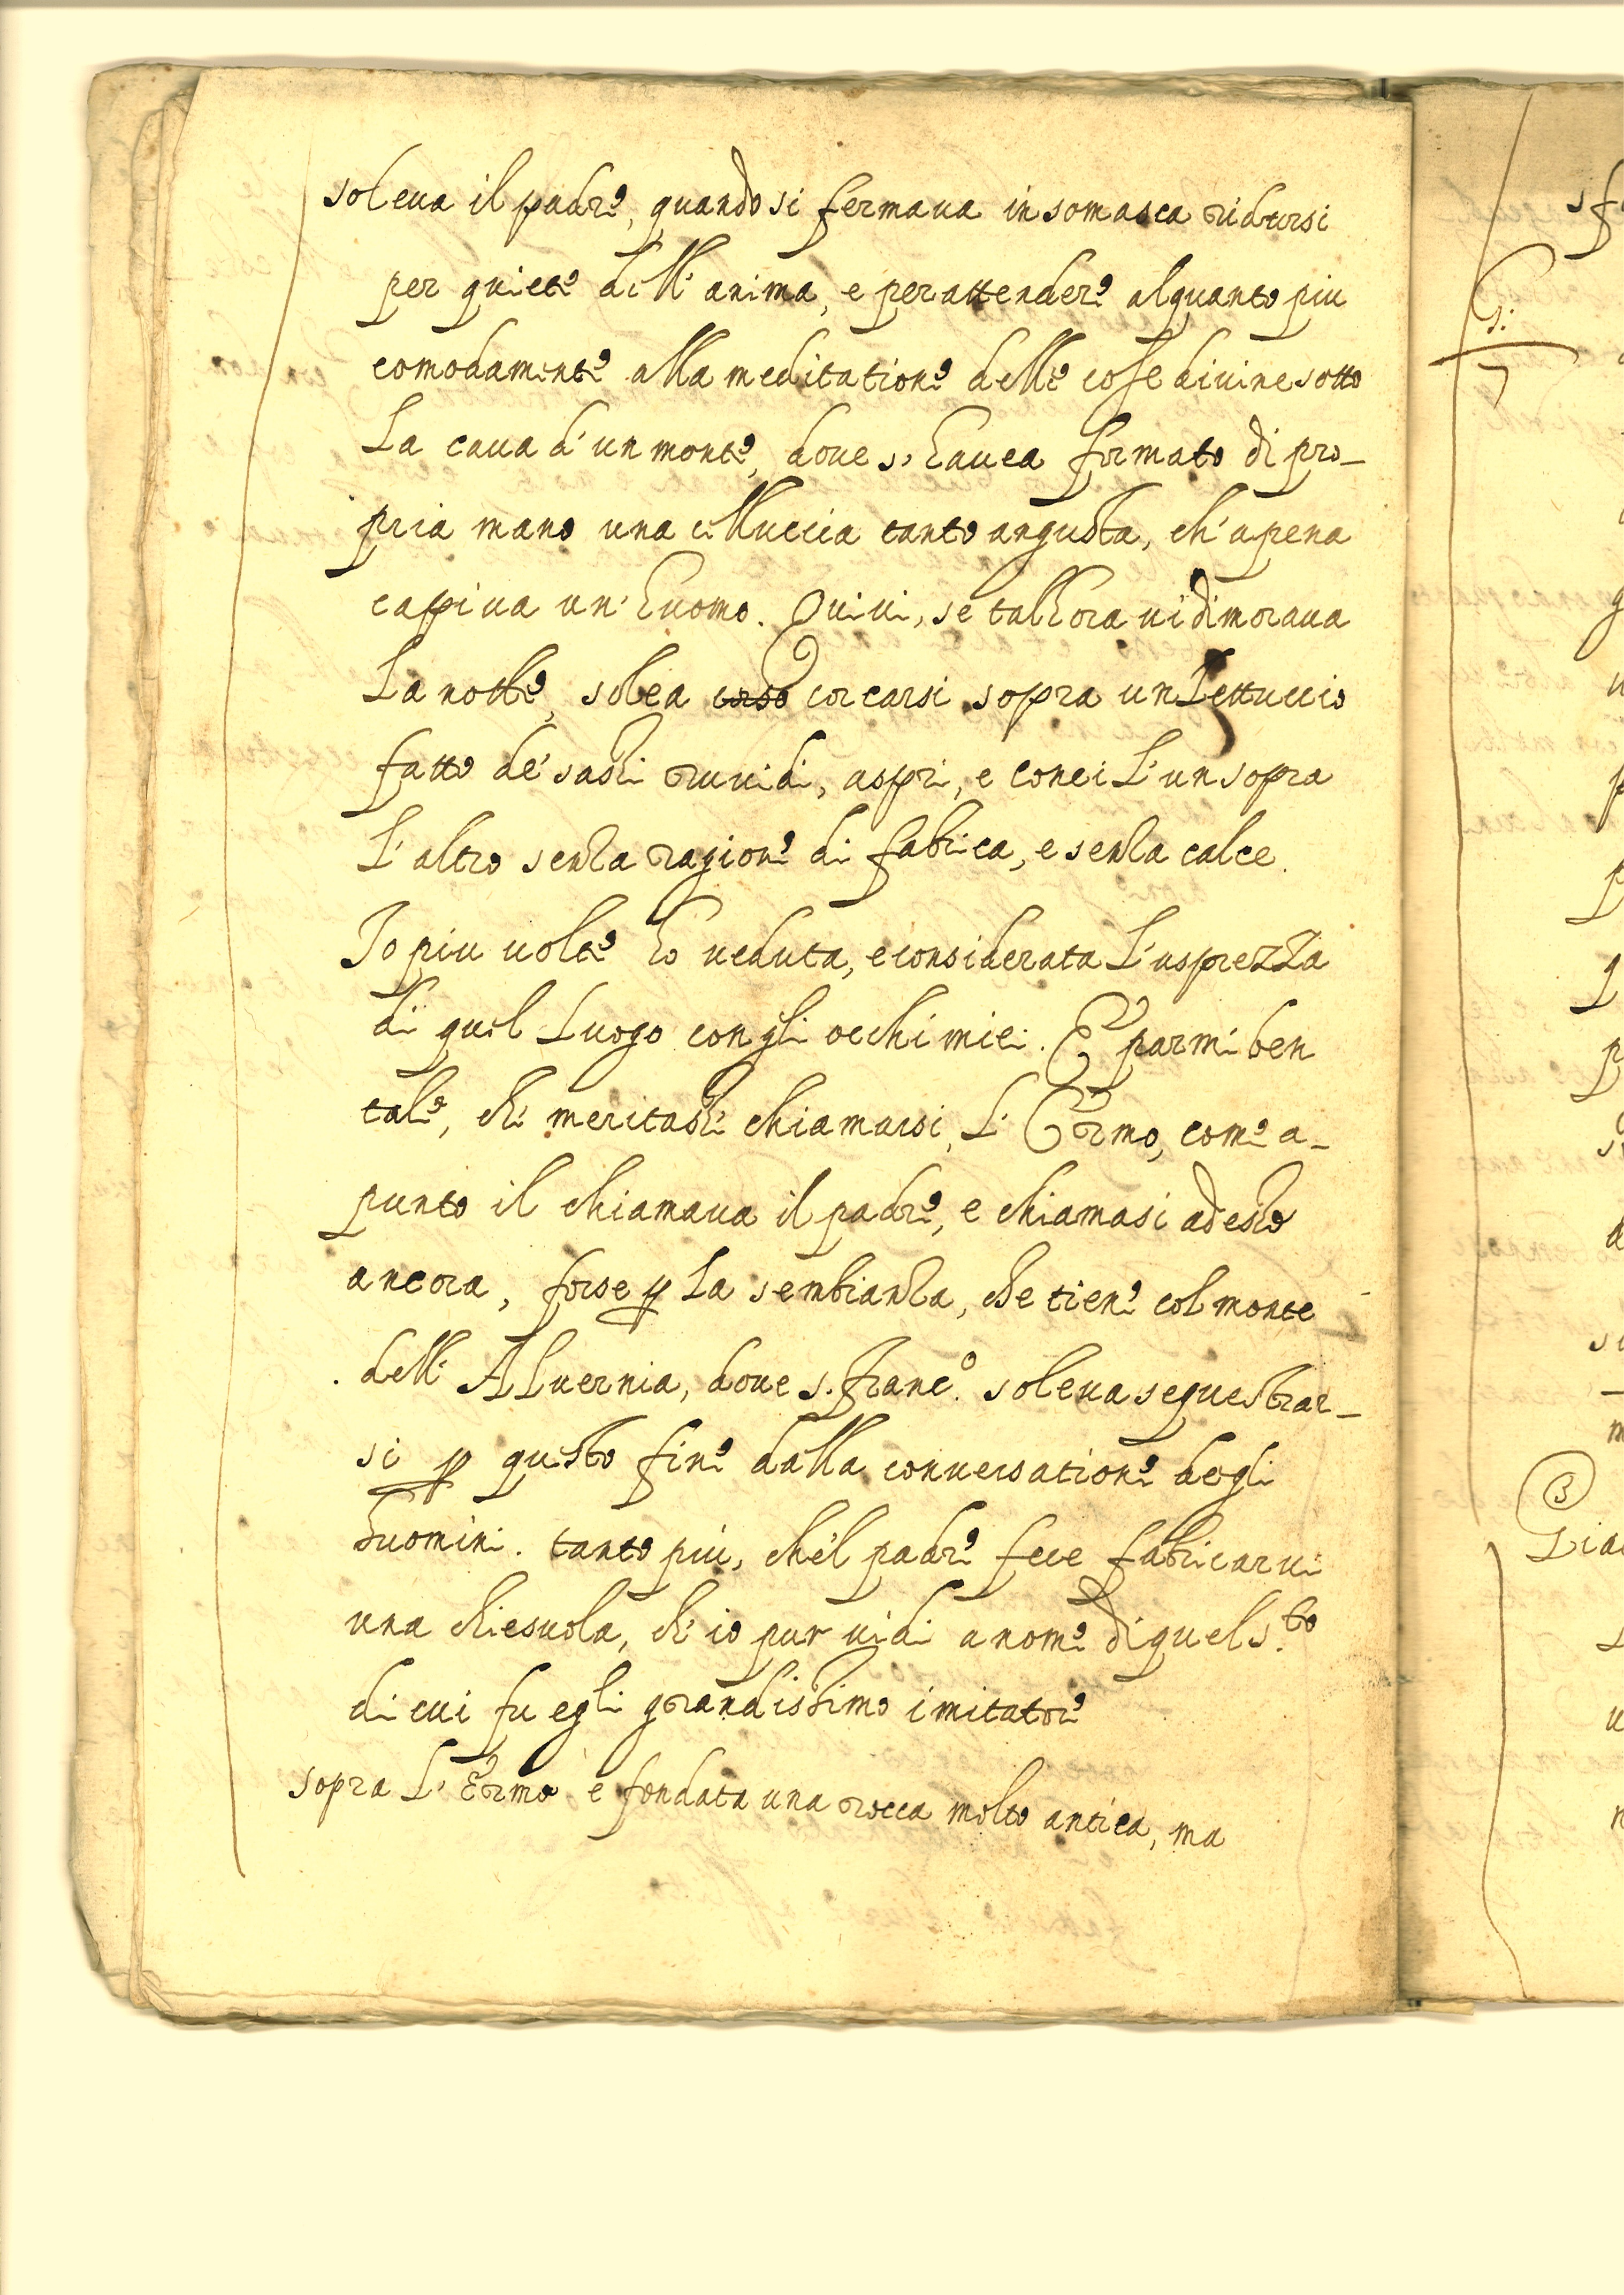 soleua il padre, quando si fermaua in somasca ridursi
per quiete dell'anima, e per attendere alquanto piu
comodamente alla meditatione delle cose diuine sotto
La caua d'un monte, doue s'hauea formato di pro-
pria mano una celluccia tanto angusta, ch'apena
capiua un'huomo. Quiui, se talhora ui dimoraua
La notte, solea corcarsi sopra un Lettuccio
fatto de' sassi ruuidi, aspri, e conci L'un sopra
L'altro senza ragione di fabrica, e senza calce.
Io piu uolte ho ueduta, e considerata L'asprezza
di quel Luogo con gli occhi miei. E parmi ben
tale, che meritasse chiamarsi, L'Ermo, come a-
punto il chiamaua il padre, e chiamasi adesso
ancora, forse p La sembianza, che tiene col monte
dell'ALuernia, doue s. Franc.o soleua sequestrar-
si p questo fine dalla conuersatione degli
huomini. tanto più, che'l padre fece fabricarui
una chiesuola, ch'io pur uidi a nome di quel s.to
di cui fu egli grandissimo imitatore
sopra L'Ermo è fondata una rocca molto antica, ma